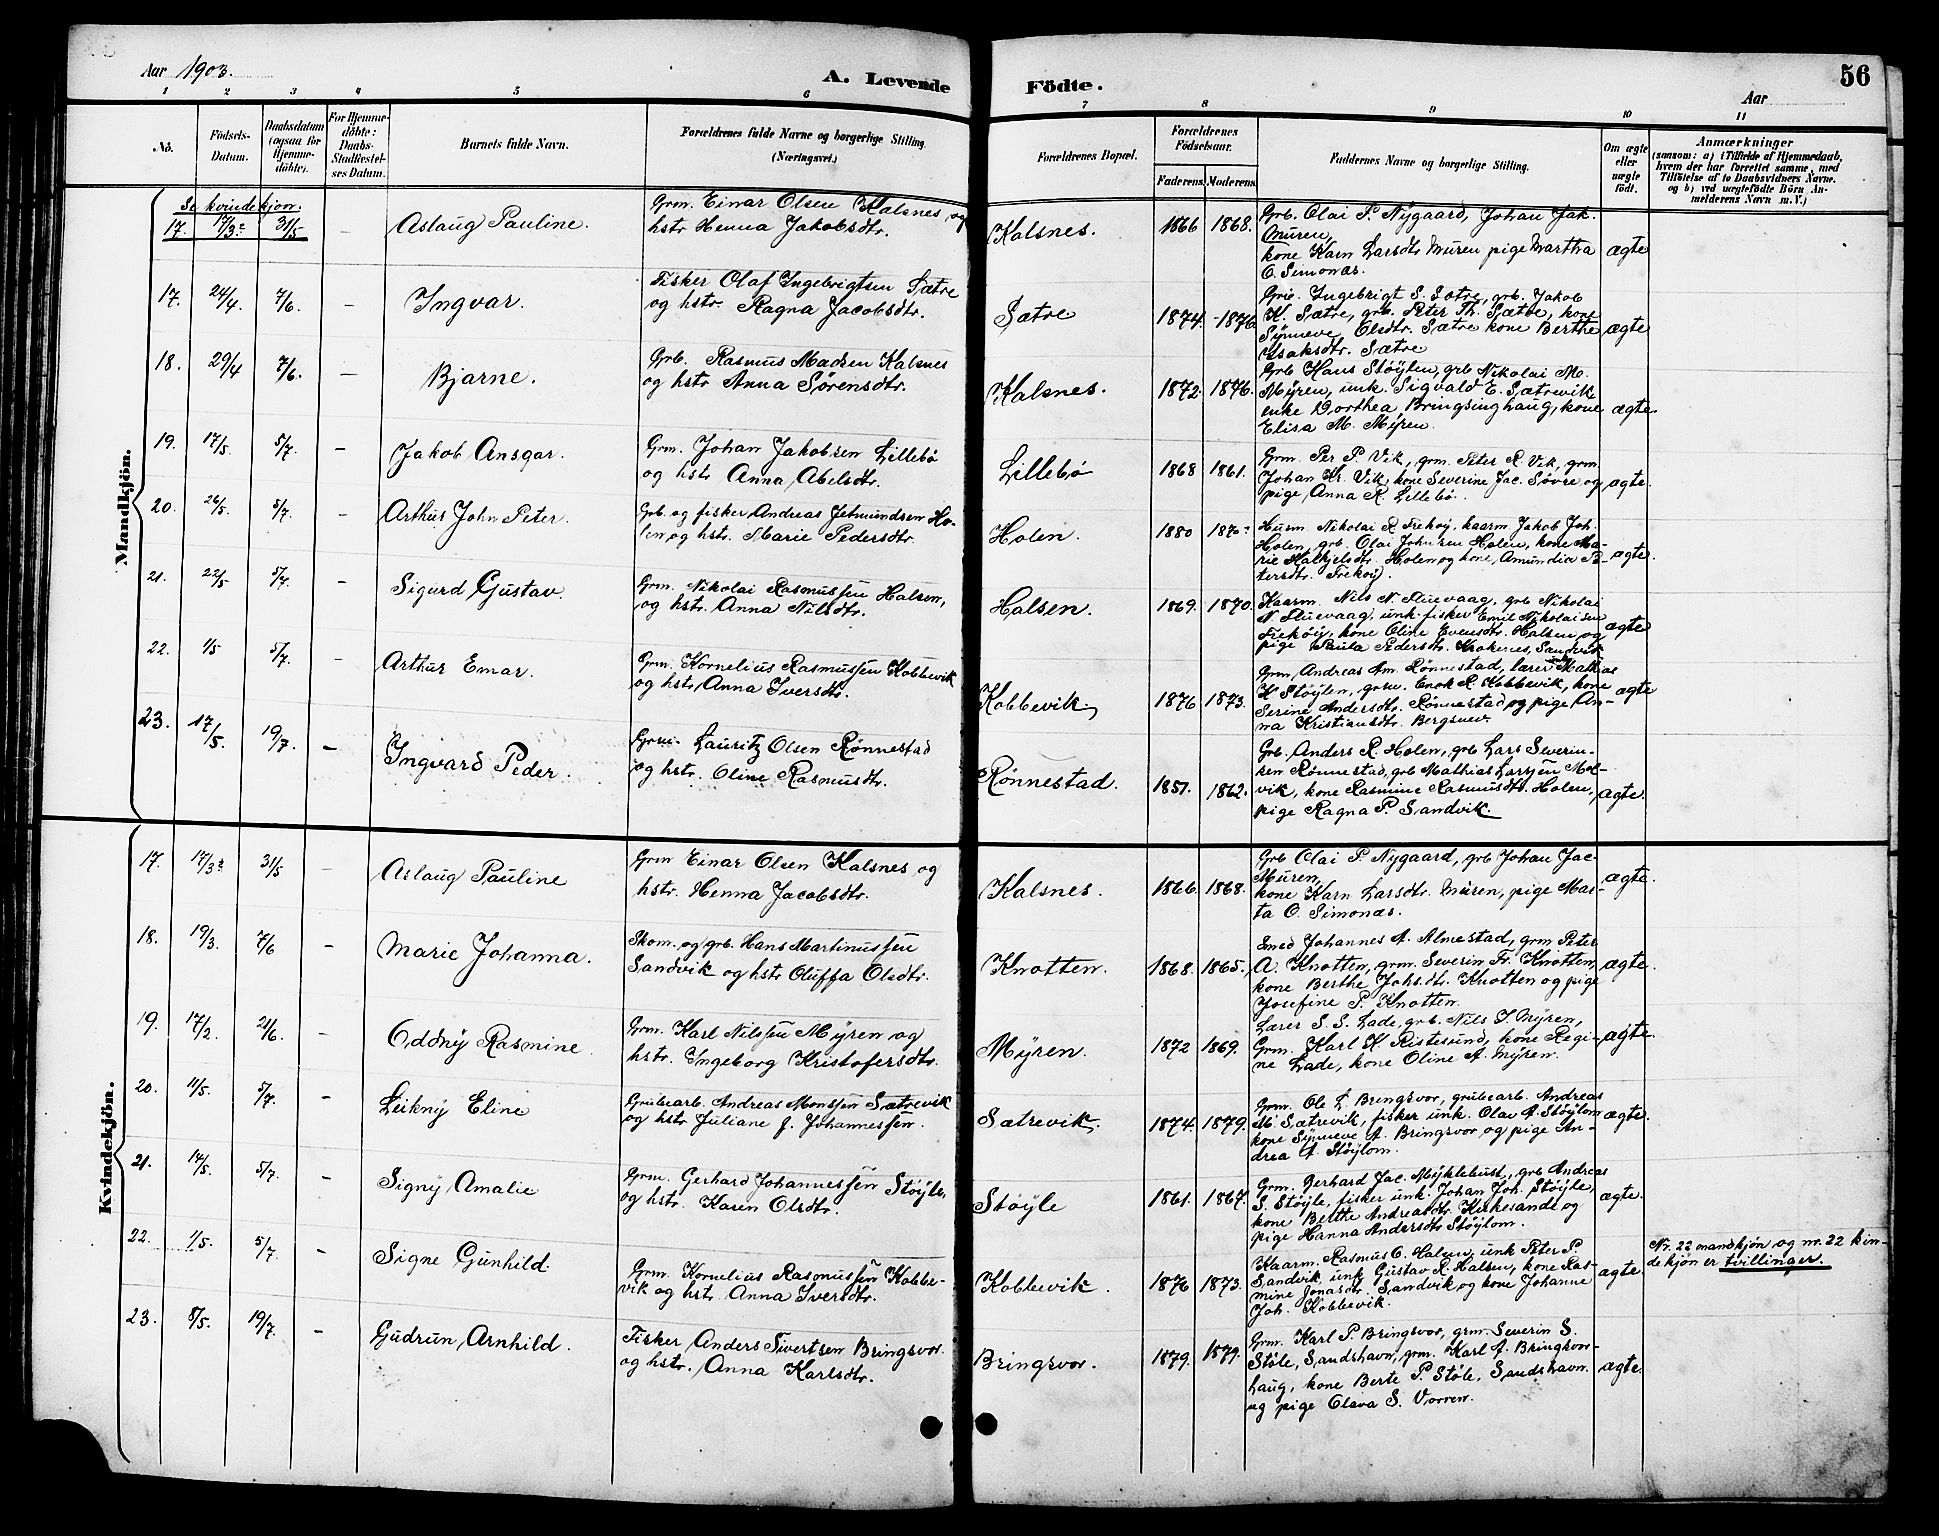 Aar 1903.
A. Levende
Födte.
56
Aar
1 2 3 4 5 6 7 8 9 10 11
Nö.
Födsels-
Datum.
Daabsdatum
(ogsaa for
Hjemme-
döbte).
For Hjemme-
döbte:
Daabs-
Stadfestel-
ses Datum.
Barnets fulde Navn.
Forældrenes fulde Navne og borgerlige Stilling.
(Næringsvei.)
Forældrenes Bopæl.
Forældrenes
Födselsaar.
Faderens.
Moderens.
Faddernes Navne og borgerlige Stilling.
Om ægte
eller
uægte
födt.
Anmærkninger
(saasom: a) i Tilfælde af Hjemmedaab,
hvem der har forrettet samme, med
Tilföielse af to Daabsvidners Navne,
og b) ved uægtefödte Börn An-
melderens Navn m. V.)
Mandkjön.
Se kvindekjøn.
17. 17/3 31/5 – Aslaug Pauline.
Grm. Einar Olsen Kalsnes og
hstr. Henna Jakobsdtr.
Kalsnes. 1866 1868.
Grb. Olai P. Nygaard, Johan Jak.
Muren,
kone Karn Larsdtr. Muren pige Martha
O. Simonas.
ægte
17. 24/4 7/6. – Ingvar.
Fisker Olaf Ingebrigtsen Sætre
og hstr. Ragna Jacobsdtr.
Sætre 1874. 1876
Grb. Ingebrigt S. Sætre, grb. Jakob
K. Sætre, grb. Peter Th. Sætre, kone
Synneve Olsdtr. Sætre kone Berthe
Isaksdtr. Sætre
ægte
18. 29/4 7/6. – Bjarne.
Grb. Rasmus Madsen Kalsnes
og hstr Anna Sørensdtr.
Kalsnes. 1872. 1876.
Grb Hans Støylen, grb Nikolai M.
Myren, unk. Sigvald E. Sætrevik
enke Dorthea, Bringsinghaug, kone
Elisa M. Myren.
ægte.
19. 17/5 5/7. – Jakob Ansgar.
Grm. Johan Jakobsen Lillebø
og hstr. Anna Abelsdtr.
Lillebø 1868 1861.
Grm. Per P. Vik, grm. Peter R. Vik, grm.
Johan Kr. Vik, kone Severine Jac. Søvre og
pige Anna R. Lillebø.
ægte.
20. 26/5. 5/7. – Arthur John Peter.
Grb. og fisker Andreas Jetmundsen Ho-
len, og hstr. Marie Pedersdtr.
Holen. 1880 1870
Husm. Nikolai R. Frekøy, kaarm. Jakob Joh.
Holen, grb. Olai Johnsen Holen, kone Ma-
rie Halkjelsdtr. Holen og kone, Amundia Pe-
tersdtr. Frekøy.
ægte.
21. 22/5 5/7. – Sigurd Gustav
Grm. Nikolai Rasmussen Halsen,
og hstr. Anna Nilsdtr.
Halsen. 1869. 1870.
Kaarm. Nils N. Fluevaag, grb Nikolai
N. Fluevaag, unk. fisker Emil Nikolaisen
Frekøy, kone Oline Evensdtr. Halsen og
pige Paula Pedersdtr. Krokenes, Sandvik
ægte
22. 1/5 5/7. – Arthur Emar.
Grm. Kornelius Rasmussen Kobbevik
og hstr. Anna Iversdtr.
Kobbevik. 1876 1873.
Grm, Andreas Am. Rønnestad, lærer Mathias
K. Støylen, grm. Enok R. Kobbevik, kone
Serine Andersdtr. Rønnestad og pige An-
na Kristiansdtr. Bergsnev.
ægte
23. 17/5. 19/7. – Ingvard Peder.
Grm. Lauritz Olsen Rønnestad
og hstr. Oline Rasmusdtr.
Rønnestad. 1851. 1862.
Grb. Anders R. Holen, grb Lars Severin-
sen Rønnestad, grb Mathias Larsen Mol-
vik, kone Rasmine Rasmusdtr. Holen,
pige Ragna P. Sandvik.
ægte.
Kvindekjön.
17. 17/3 31/5 – Aslaug Pauline
Grm Einar Olsen Kalsnes og
hstr. Henna Jacobsdtr.
Kalsnes. 1866. 1868.
Grb Olai P. Nygaard, grb Johan Jac.
Muren,
kone Karn Larsdtr. Muren, pige Mar-
ta O. Simonas.
ægte.
18. 19/3. 7/6 – Marie Johanna.
Skom. og grb. Hans Martinussen
Sandvik og hstr Oluffa Olsdtr.
Knotten. 1868. 1865.
Smed Johannes A. Almestad, grm Peter
A. Knotten, grm. Severin Fr. Knotten,
kone Berthe Johs.dtr. Knotten og pige
Josefine P. Knotten.
ægte.
19. 17/2. 21/6. – Oddny Rasmine
Grm. Karl Nilssen Myren og
hstr. Ingeborg Kristofersdtr.
Myren. 1872 1869.
Lærer S. S. Lade, grb. Nils J. Myren,
Grm. Karl K. Ristesund, kone Regi-
ne Lade, kone Oline A. Myren.
ægte.
20. 11/5. 5/7. – Leikny Eline
Grubearb. Andreas Monsen Sætrevik
og hstr. Juliane f. Johannessen.
Sætrevik. 1874. 1879.
Grm. Ole L. Bringsvor, grubearb. Andreas
M. Sætrevik, fisker unk. Olav A. Støylom
kone Synneve A. Bringsvor og pige An-
drea A. Støylom.
ægte.
21. 14/5. 5/7. – Signy Amalie
Grm. Gerhard Johannessen Støyle,
og hstr. Karen Olsdtr.
Støyle 1861. 1867.
Grm. Gerhard Jac. Myklebust, grb Andreas
S. Støyle, fisker unk. Johan Joh. Støyle,
kone Berthe Andreasdtr. Kirkesande og
pige Hanna Andersdtr Støylom.
ægte.
22. 1/5. 5/7. – Signe Gunhild.
Grm. Kornelius Rasmussen Kobbe-
vik og hstr. Anna Iversdtr.
Kobbevik. 1876 1873.
Kaarm. Rasmus O. Halsen, unk Peter P.
Sandvik, unk. Gustav R. Halsen, kone Ras-
mine Jonasdtr. Sandvik og kone Johanne
Joh. Kobbevik.
ægte.
Nr. 22 mandkjøn og nr. 22 kin-
dekjøn er tvillinger.
23. 8/5. 19/7. – Gudrun Arnhild.
Fisker Anders Sivertsen Bringsvor.
og hstr. Anna Karlsdtr.
Bringsvor. 1879. 1879.
Grm. Karl P. Bringsvor, grm. Severin S.
Støle, Sandshavn, grm. Karl A. Bringsvor-
haug, kone Berte P. Støle, Sandshavn.
og pige Olava S. Vorren.
ægte.